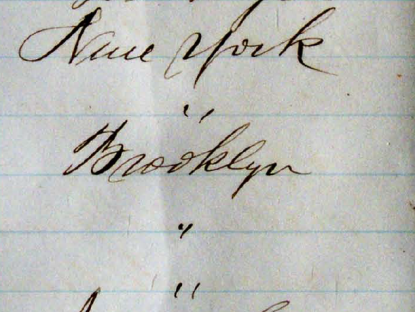 New York
"
Brooklyn
"
"